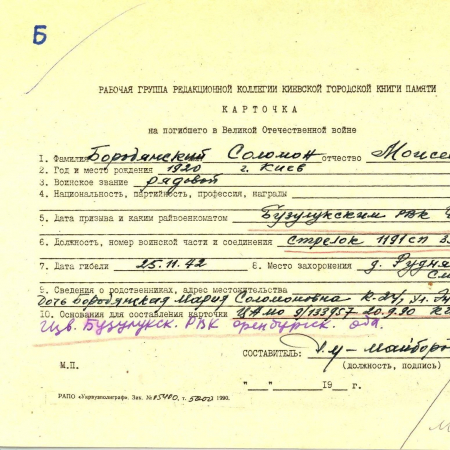 Б
РАБОЧАЯ ГРУППА РЕДАКЦИОННОЙ КОЛЛЕГИИ КИЕВСКОЙ ГОРОДСКОЙ КНИГИ ПАМЯТИ
КАРТОЧКА
на погибшего в Великой Отечественной войне
1. Фамилия Бородянский Соломон отчество Моисе
2. Год и место рождения 1920 г. Киев
3. Воинское звание рядовой
4. Национальность, партийность, профессия, награды
5. Дата призыва и каким райвоенкоматом Бузулукским РВК
6. Должность, номер воинской части и соединения стрелок 1191 сп
7. Дата гибели 25.11.42 8. Место захоронения д. Рудня
См
9. Сведения о родственниках, адрес местожительства
Дочь Бородянская Мария Соломоновна К-24, ул.
10. Основания для составления карточки ЦАМО 9/133957 20.9.90
Бузулукск. РВК Оренбургск. обл.
СОСТАВИТЕЛЬ: Майборо
М.П. (должность, подпись)
"___"________19___г.
РАПО «Укрвузполиграф». Зак. № 05400, т. 5000 1990.